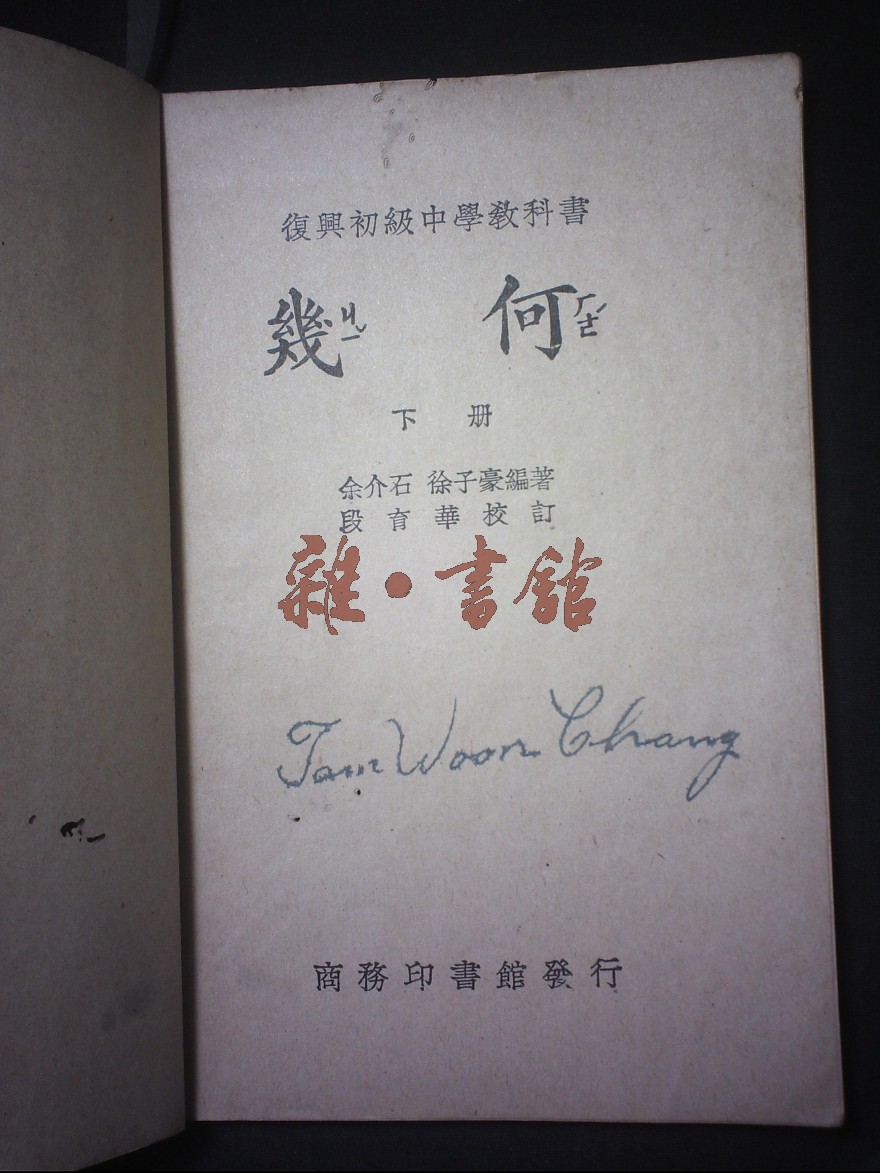 復興初級中學教科書
幾ㄐㄧˇ 何ㄏㄜˊ
下册
余介石 徐子豪編著
段育華校訂
雜·書館
Tam Woon Chang
商務印書館發行